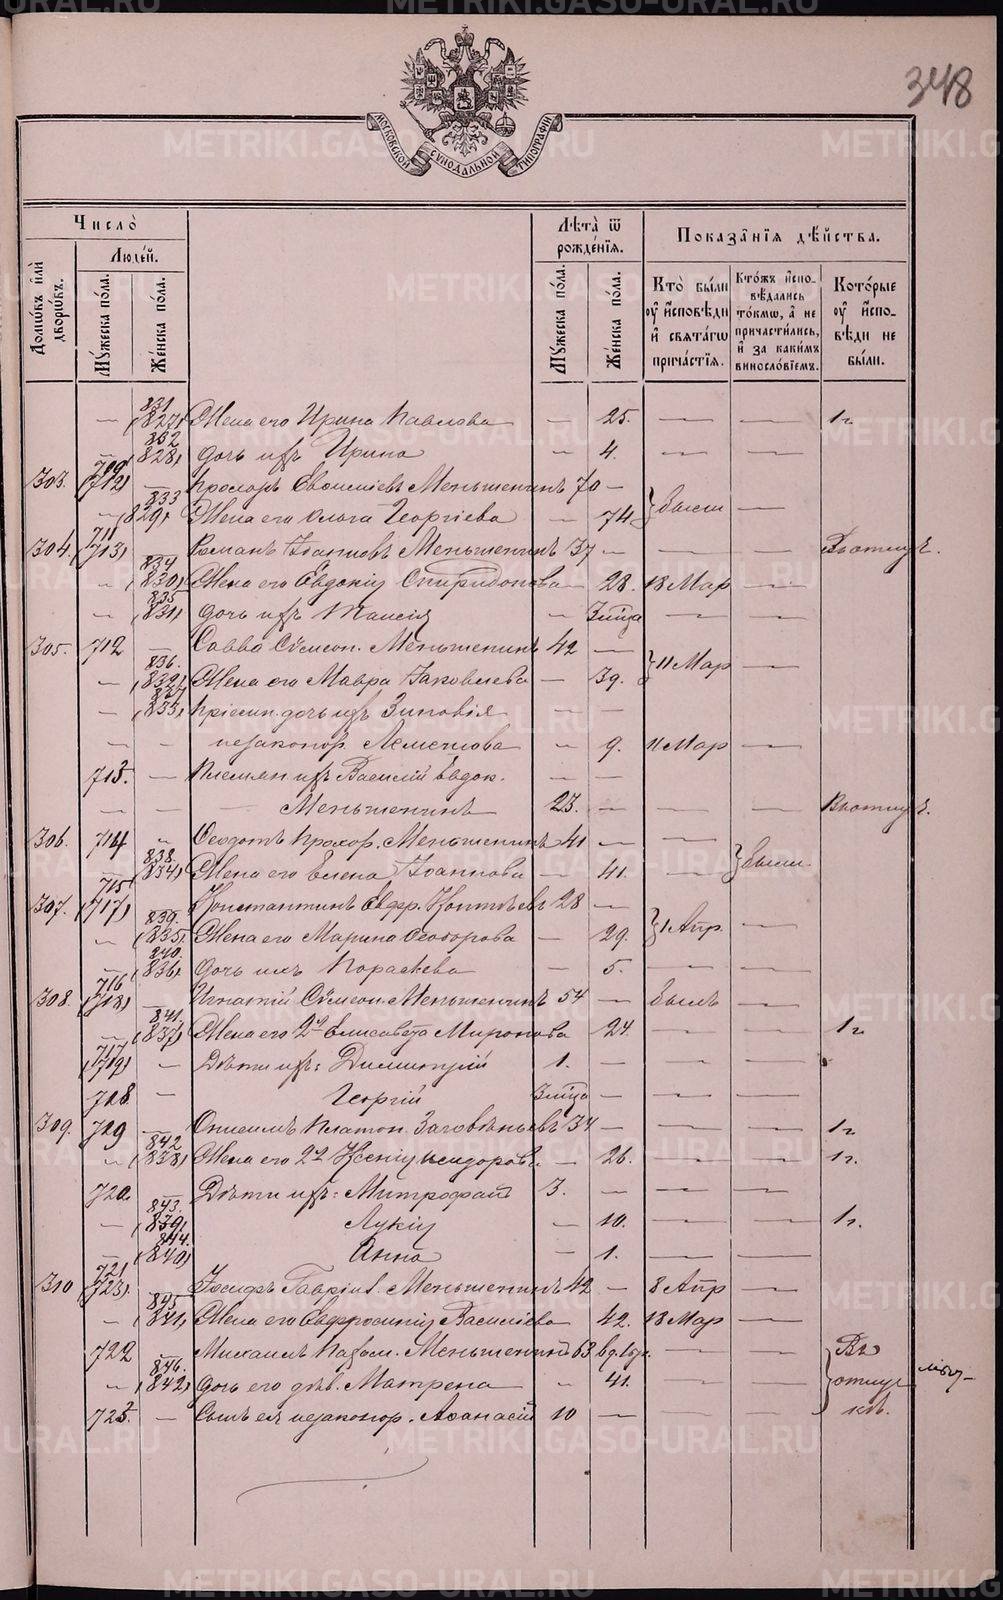 348
МОСКОВСКОЙ СѴНОДАЛЬНОЙ ТИПОГРАФІИ
Число̀
Люде́й.
Домѡ́въ и҆лѝ дворѡ́въ.
Мꙋ́жеска по́ла.
Же́нска по́ла.
Лѣ́та ѿ рожде́нїѧ.
Мꙋ́жеска по́ла.
Же́нска по́ла.
Показа̑нїѧ дѣ́йства.
Кто̀ бы́ли оу҆ и҆сповѣ́ди и҆ свѧта́гѡ прича́стїѧ.
Кто́жъ и҆спо-вѣ́дались то́кмѡ, а҆ не причасти́лись, и҆ за каки́мъ винослові́емъ.
Кото́рые оу҆ и҆спо-вѣ́ди не бы́ли.
— 831 (827) Жена его Ирина Павлова — 25. — — 1г
— 832 (828) дочь ихъ Ирина — 4. — —
303. 710 (712) — Прохоръ Евѳиміевъ Меньшенинъ 70 — } были —
— 833 (829) Жена его Ольга Георгіева — 74
304. 711 (713) Романъ Іоанновъ Меньшенинъ 37 — — — Въ отлуч.
— 834 (830) Жена его Евдокія Спиридонова — 28. 18 Мар —
— 835 (831) дочь ихъ Таисія — — —
305. 712 — Савва Сѵмеон. Меньшенинъ 42 — } 11 Мар —
— 836. (832) Жена его Мавра Іаковлева — 39.
— 837 (833) дочь ихъ Зиновія — —
— — незаконор. — 9. 11 Мар —
713. — Племян ихъ Василій Евдок. — —
— — Меньшенинъ 23. — — — Въ отлуч.
306. 714 — Ѳеодотъ Прохор. Меньшенинъ 41 — — } были
— 838. (834) Жена его Елена Іоаннова — 41. —
307. 715 (717) — Константинъ Евфр. 28 — } 1 Апр —
— 839. (835) Жена его Марина Ѳеодорова — 29.
— 840. (836) дочь ихъ — 5. — —
308. 716 (718) — Игнатій Сѵмеон. Меньшенинъ 54 — былъ —
— 841. (837) Жена его 2я Елисавета Миронова — 24. — — 1г
717 (719) — Дѣти ихъ: Димитрій 1. — — —
718 — Георгій — — —
309. 719 — Онисимъ Платон. 34 — — — 1г
— 842 (838) Жена его 2я Ксенія Исидорова — 26. — — 1г.
720. — Дѣти ихъ: Митрофанъ 3. — — —
— 843. (839) Лукія — 10. — — 1г.
— 844. (840) Анна — 1. — —
310 721 (723) — Іосифъ Гавріил. Меньшенинъ 42 — 8 Апр —
— 845. (841) Жена его Евфросинія Василіева — 42. 18 Мар —
722 Михаилъ Меньшенинъ 63 вдов. — — } Въ отлуч кѣ.
— 846. (842) дочь его дѣв. Матрена — 41. — —
723. — Сынъ ея незаконор. Аѳанасій 10 — — —
METRIKI.GASO-URAL.RU